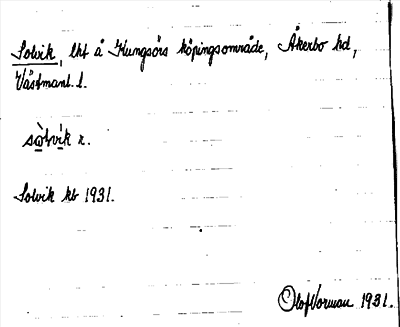 Solvik, lht å Kungsörs köpingsområde, Åkerbo hd,
Västmanl. l.
sòlvìk r.
Solvik kb 1931.
Olof Vorman 1931.